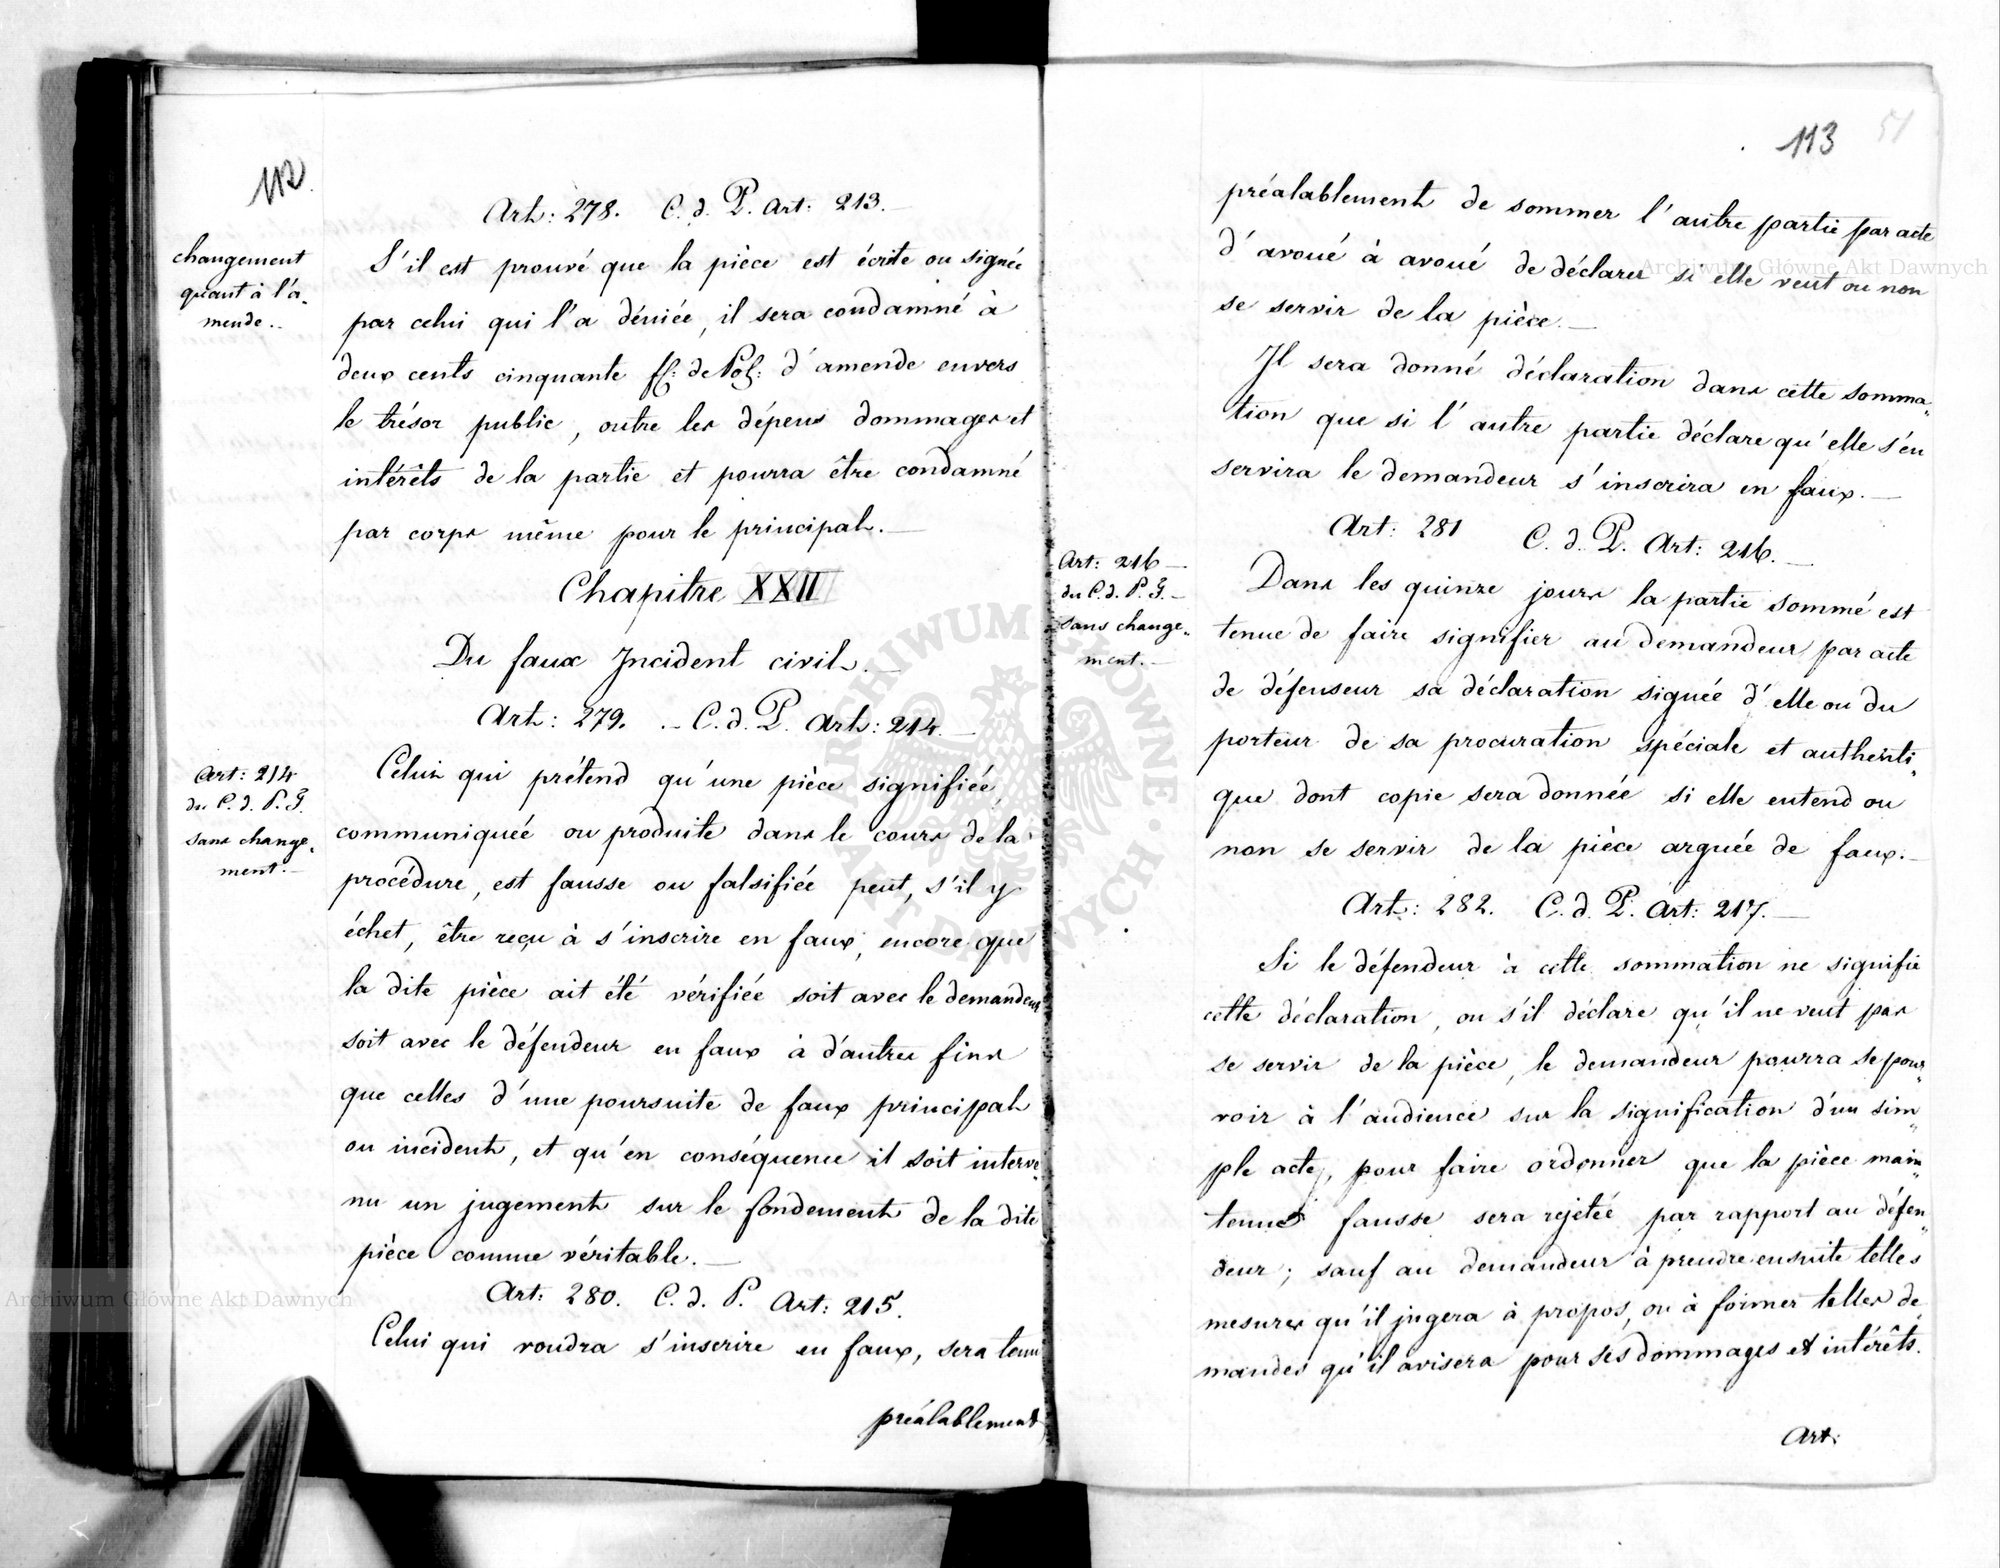 112
Art: 278. C. d. P. Art: 213.
changement
quant à l'a„
mende..
S'il est prouvé que la pièce est écrite ou signée
par celui qui l'a déniée, il sera condamné à
deux cents cinquante fl: de Pol: d'amende envers
le trésor public, outre les dépens dommages et
intérêts de la partie et pourra être condamné
par corps même pour le principal.—
Chapitre XXII
Du faux Incident civil.—
Art: 279. — C. d. P. Art: 214.—
Art: 214
du C. d. P. F.
sans change„
ment.—
Celui qui prétend qu'une pièce signifiée,
communiquée ou produite dans le cours de la
procédure, est fausse ou falsifiée peut, s'il y
échet, être reçu à s'inscrire en faux, encore que
la dite pièce ait été vérifiée soit avec le demandeur
soit avec le défendeur en faux à d'autres fins
que celles d'une poursuite de faux principal
ou incident, et qu'en conséquence il soit interve„
nu un jugement sur le fondement de la dite
pièce comme véritable.—
Art: 280. C. d. P. Art: 215.
Celui qui voudra s'inscrire en faux, sera tenu
préalablement
113 51
préalablement de sommer l'autre partie par acte
d'avoué à avoué de déclarer si elle veut ou non
se servir de la pièce.—
Il sera donné déclaration dans cette somma„
tion que si l'autre partie déclare qu'elle s'en
servira le demandeur s'inscrira en faux.—
Art: 281 C. d. P. Art: 216.—
Art: 216 —
du C. d. P. F. —
sans change„
ment.—
Dans les quinze jours la partie sommé est
tenue de faire signifier au demandeur par acte
de défenseur sa déclaration signée d'elle ou du
porteur de sa procuration spéciale et authenti„
que dont copie sera donnée si elle entend ou
non se servir de la pièce arguée de faux.—
Art: 282. C. d. P. Art: 217.—
Si le défendeur à cette sommation ne signifie
cette déclaration, ou s'il déclare qu'il ne veut pas
se servir de la pièce, le demandeur pourra se pour„
voir à l'audience sur la signification d'un sim„
ple acte, pour faire ordonner que la pièce main„
tenue fausse sera rejetée par rapport au défen„
deur; sauf au demandeur à prendre ensuite telles
mesures qu'il jugera à propos, ou à former telles de„
mandes qu'il avisera pour ses dommages et intérêts.
Art:
Archiwum Główne Akt Dawnych
Archiwum Główne Akt Dawnych
ARCHIWUM GŁÓWNE · AKT DAWNYCH ·